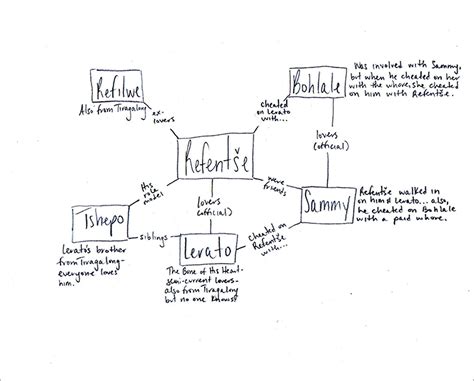 Refilwe
Also from Tiragalong
ex-
lovers
Bohlale
Was involved with Sammy,
but when he cheated on her
with the whore, she cheated
on him with Refentše.
cheated
on Lerato
with...
lovers
(official)
Refentše
His
role
model
lovers
(official)
were
friends
Tshepo
Lerato's brother
from Tiragalong-
everyone loves
him.
siblings
Lerato
The Bone of His Heart-
semi-current lovers-
also from Tiragalong
but no one knows!
Cheated on
Refentše
with...
Sammy
Refentše walked in
on him & Lerato... also,
he cheated on Bohlale
with a paid whore.